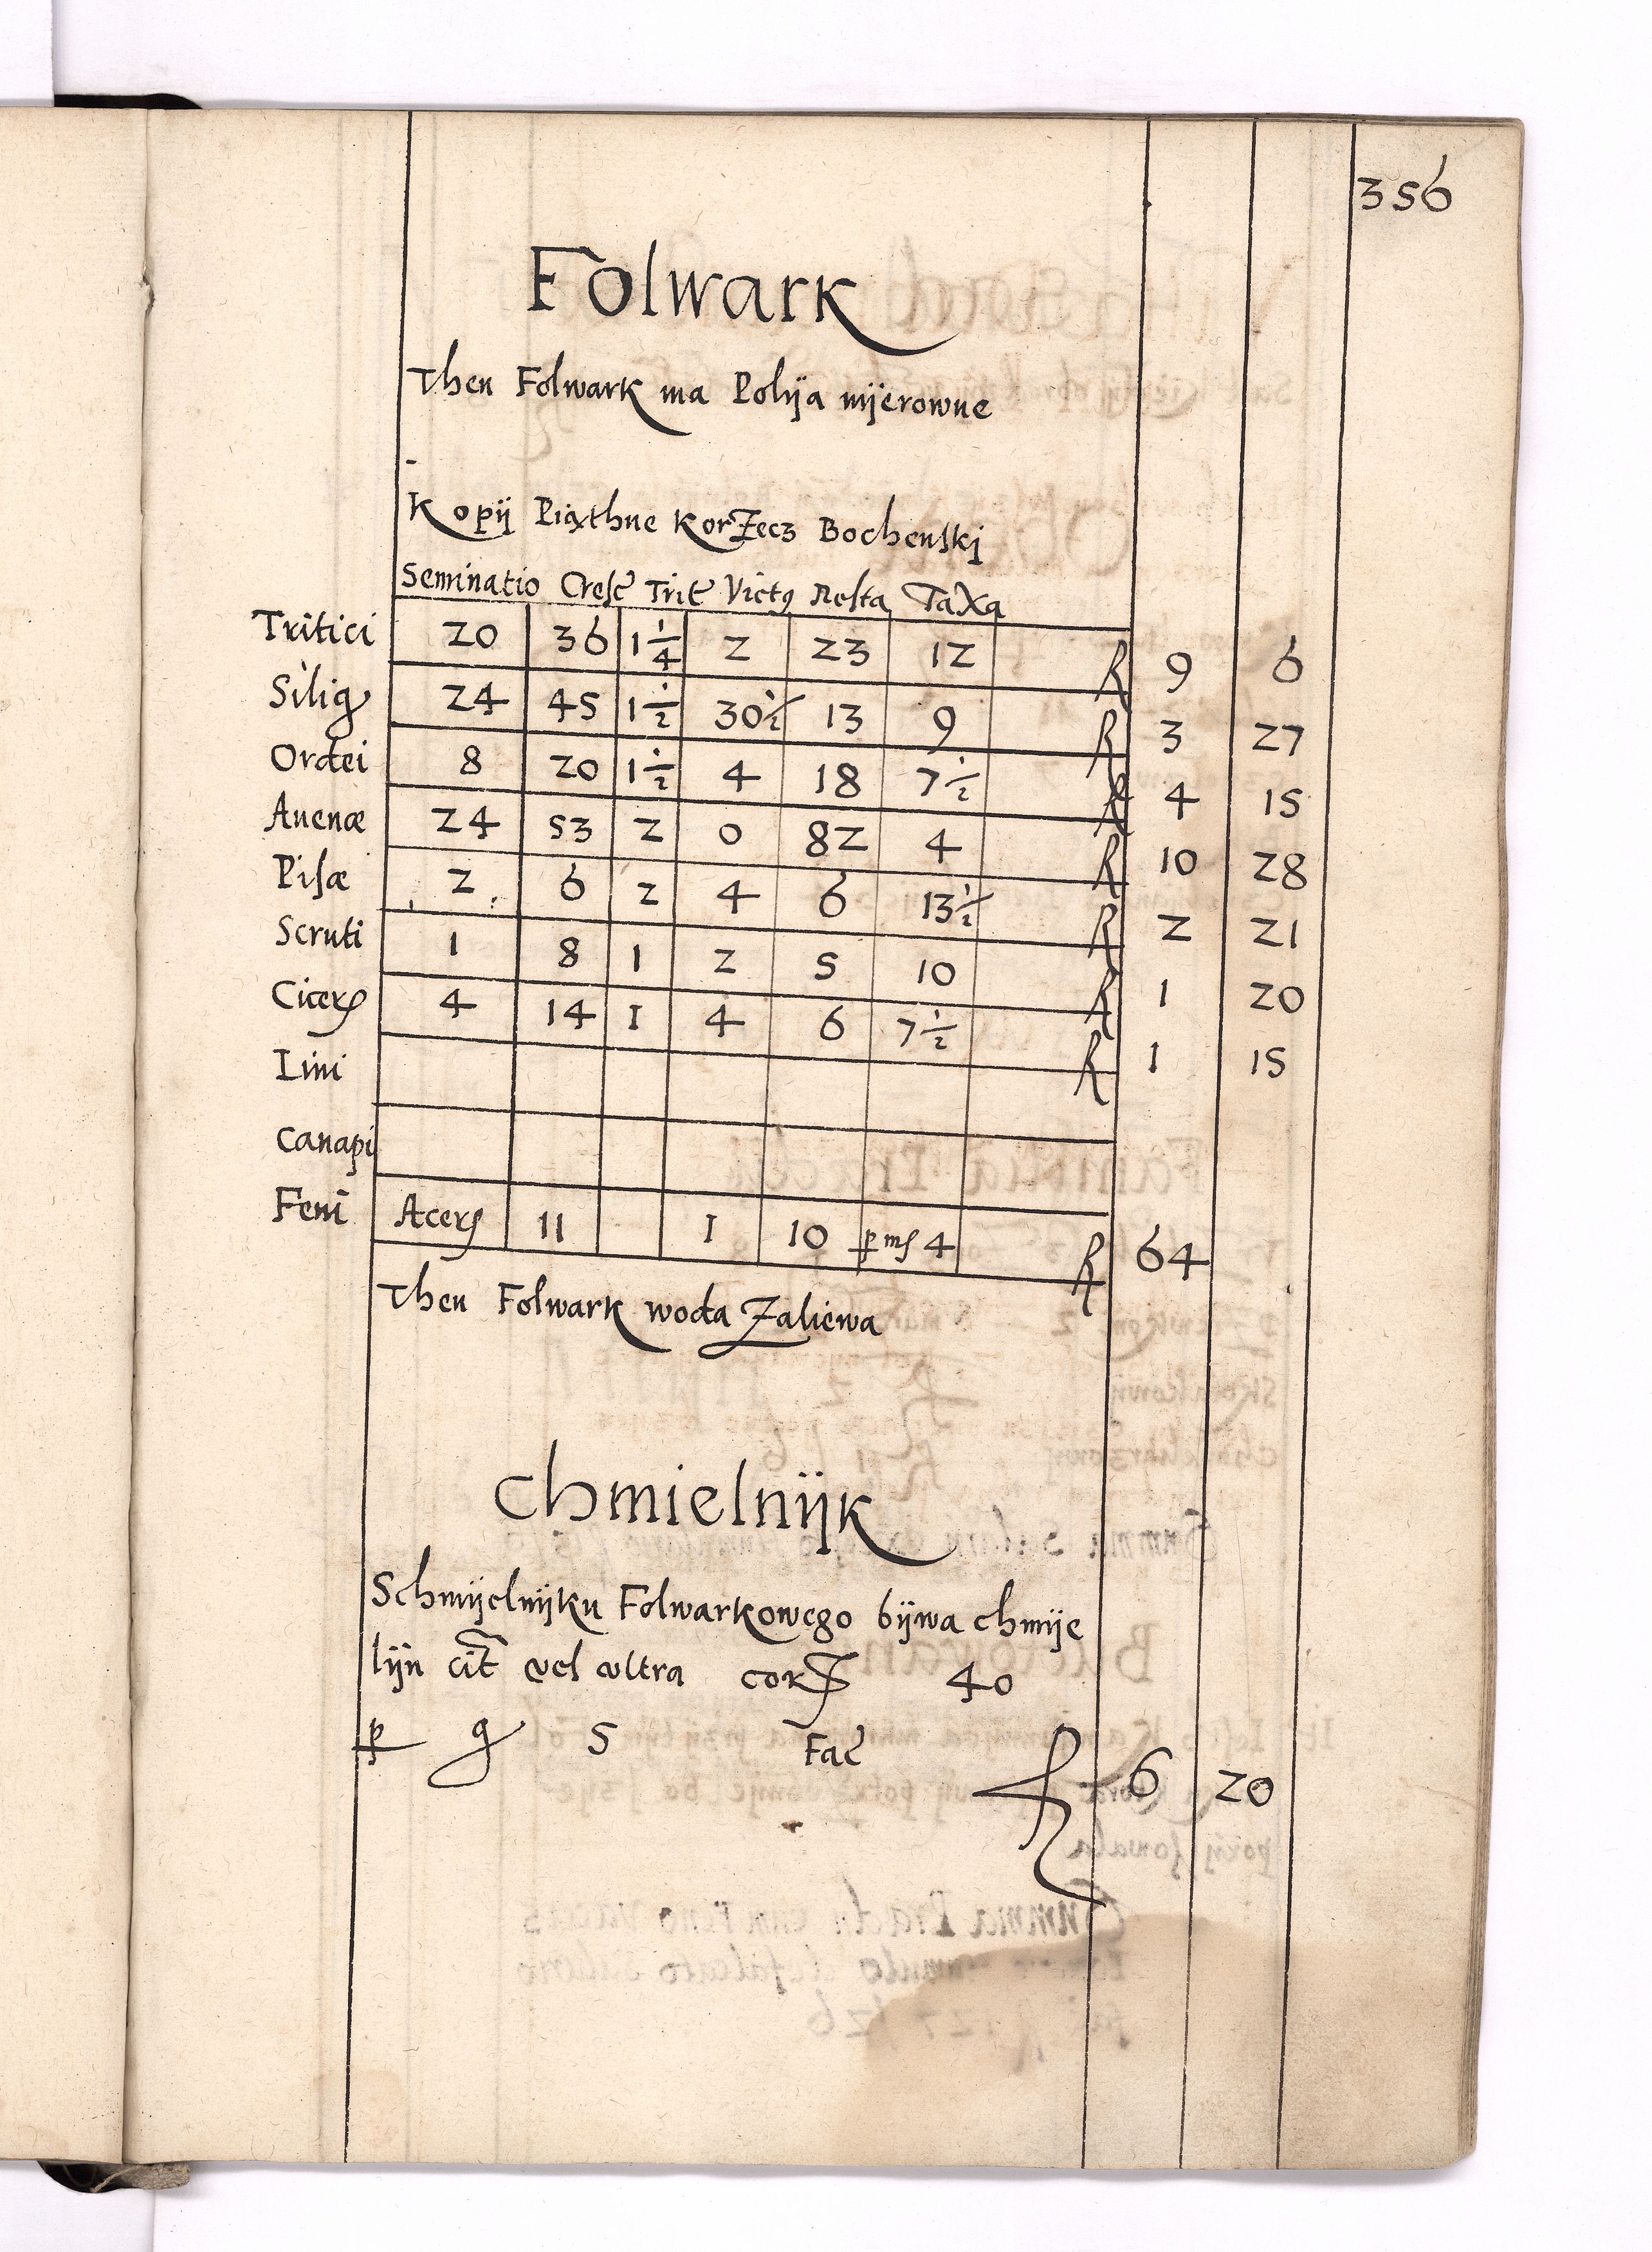 356
Folwark
Then Folwark ma Polija mijerowne
Kopij Piąthne Korzecz Bochenskj
Seminatio Cresc̄ Trit̄ Victꝰ Resta Taxa
Tritici 20 36 1 1/4 2 23 12 R 9 6
Silig 24 45 1 1/2 30 1/2 13 9 R 3 27
Ordei 8 20 1 1/2 4 18 7 1/2 R 4 15
Auenæ 24 53 2 0 82 4 R 10 28
Pisæ 2 6 2 4 6 13 1/2 R 2 21
Scruti 1 8 1 2 5 10 R 1 20
Cicerꝭ 4 14 1 4 6 7 1/2 R 1 15
Lini
Canapi
Feni Acerꝭ 11 1 10 ꝑ mſ 4 R 64
Then Folwark woda Zaliewa
Chmielnijk
Schmijelnijku Folwarkowego bijwa chmije
lijn cit̄ vel vltra corꝭ 40
ꝑ g 5 Fac̄ R 6 20